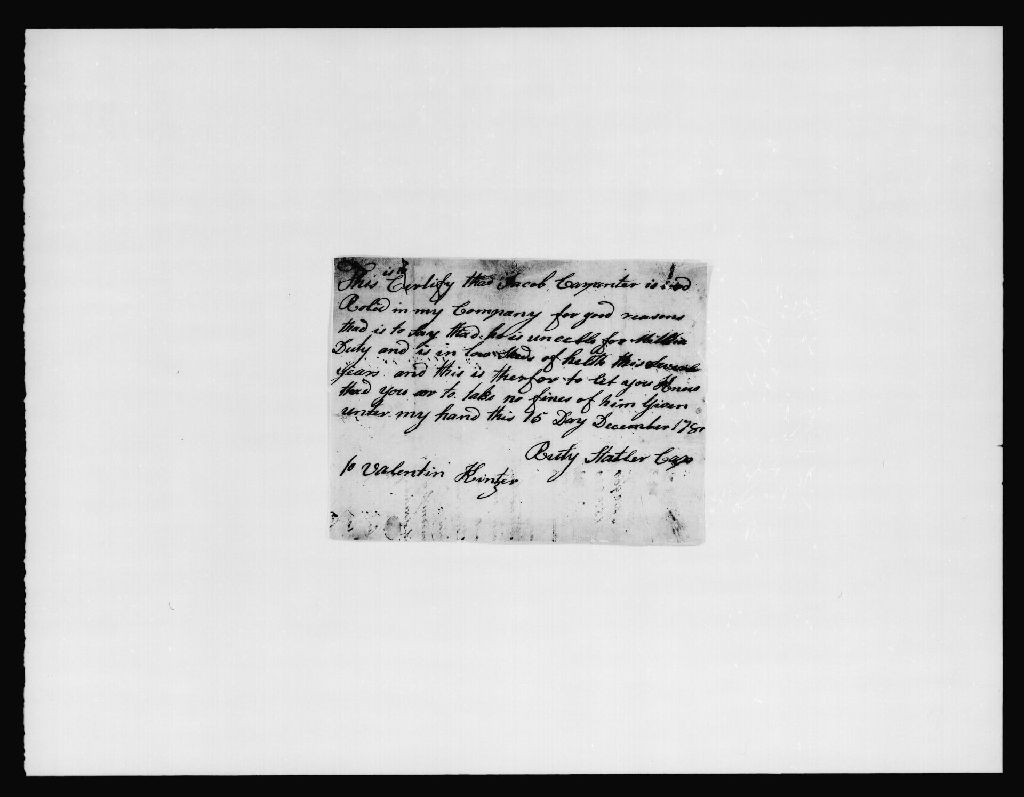 This is to Certify thad Jacob Carpenter is nod
Roled in my Company for good reasons
thad is to Say thad he is uneable for Millitia
Duty and is in low Stads of helth this Several
years and this is therfor to let you Know
thad you are to take no fines of him Given
unter my hand this 15 Day December 178
Rudy Statler Cap
to Valentin Hunter